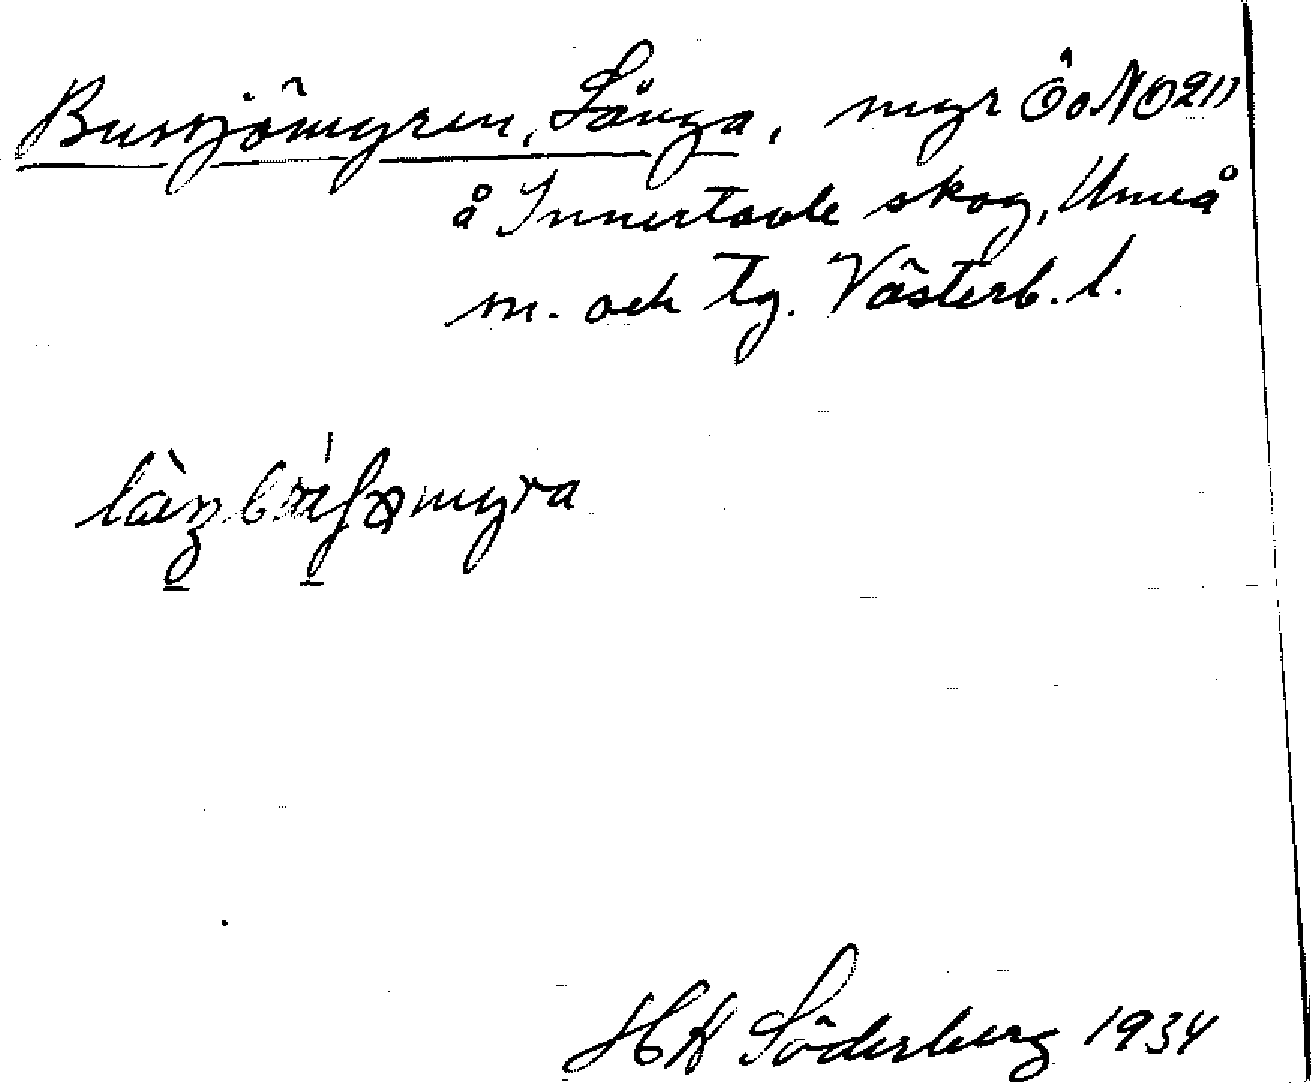 Bursjömyren, Långa, myr Ö o NO 211
å Innertavle skog, Umeå
m. och tg. Västerb. l.
HK Söderberg 1934